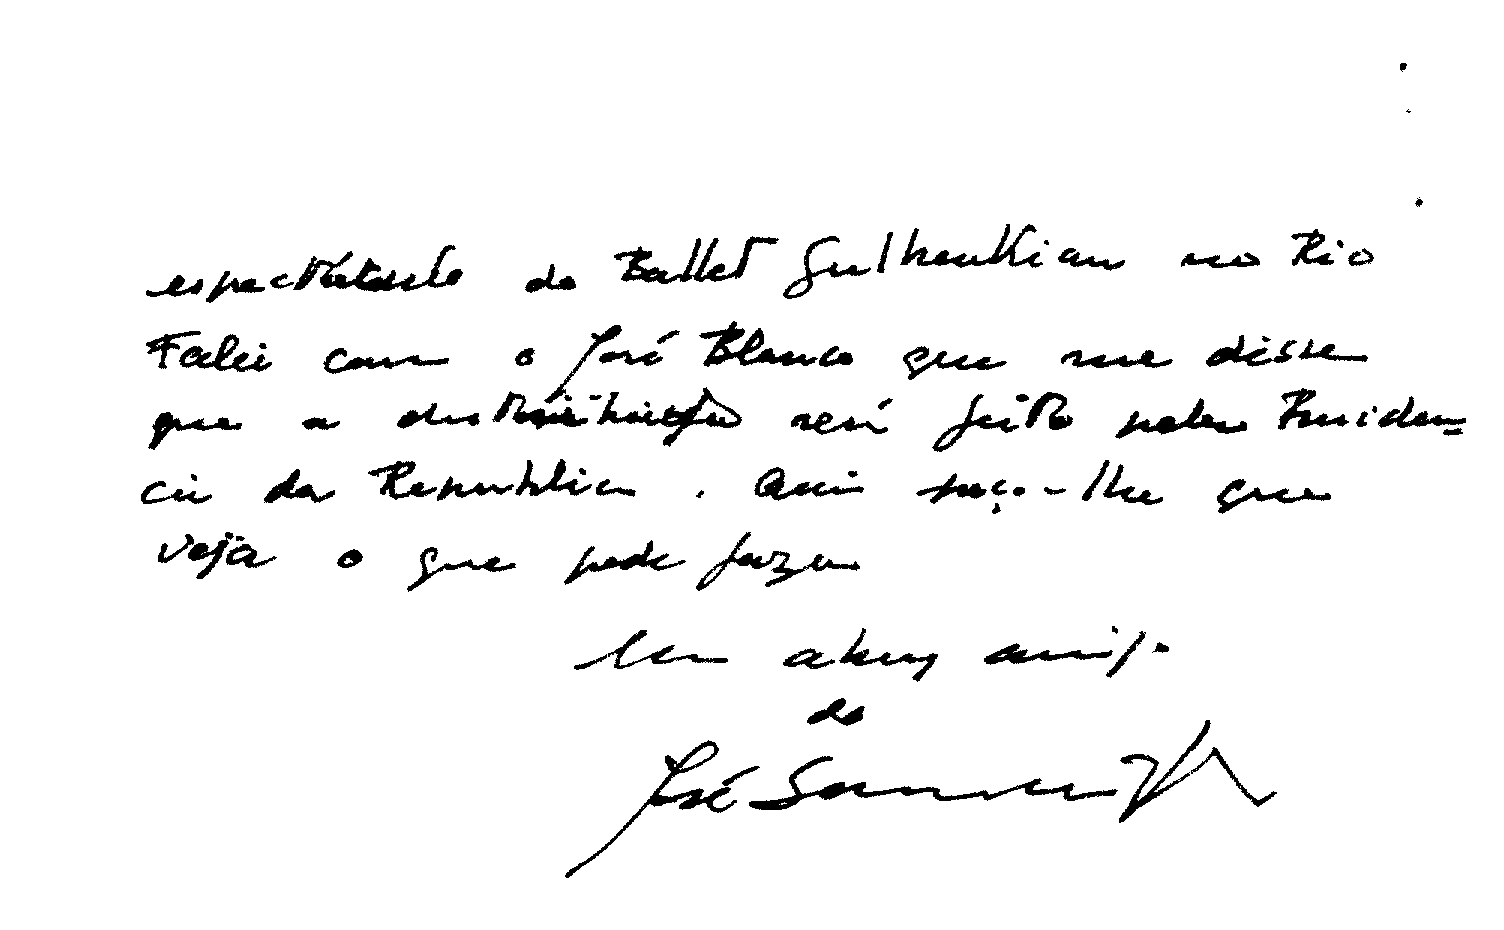 espectáculo do Ballet Gulbenkian no Rio
Falei com o José Blanco que me disse
que a distribuição será feita pela Presiden=
cia da Republica. Assim peço-lhe que
veja o que pode fazer
Um abraço amigo
do
José